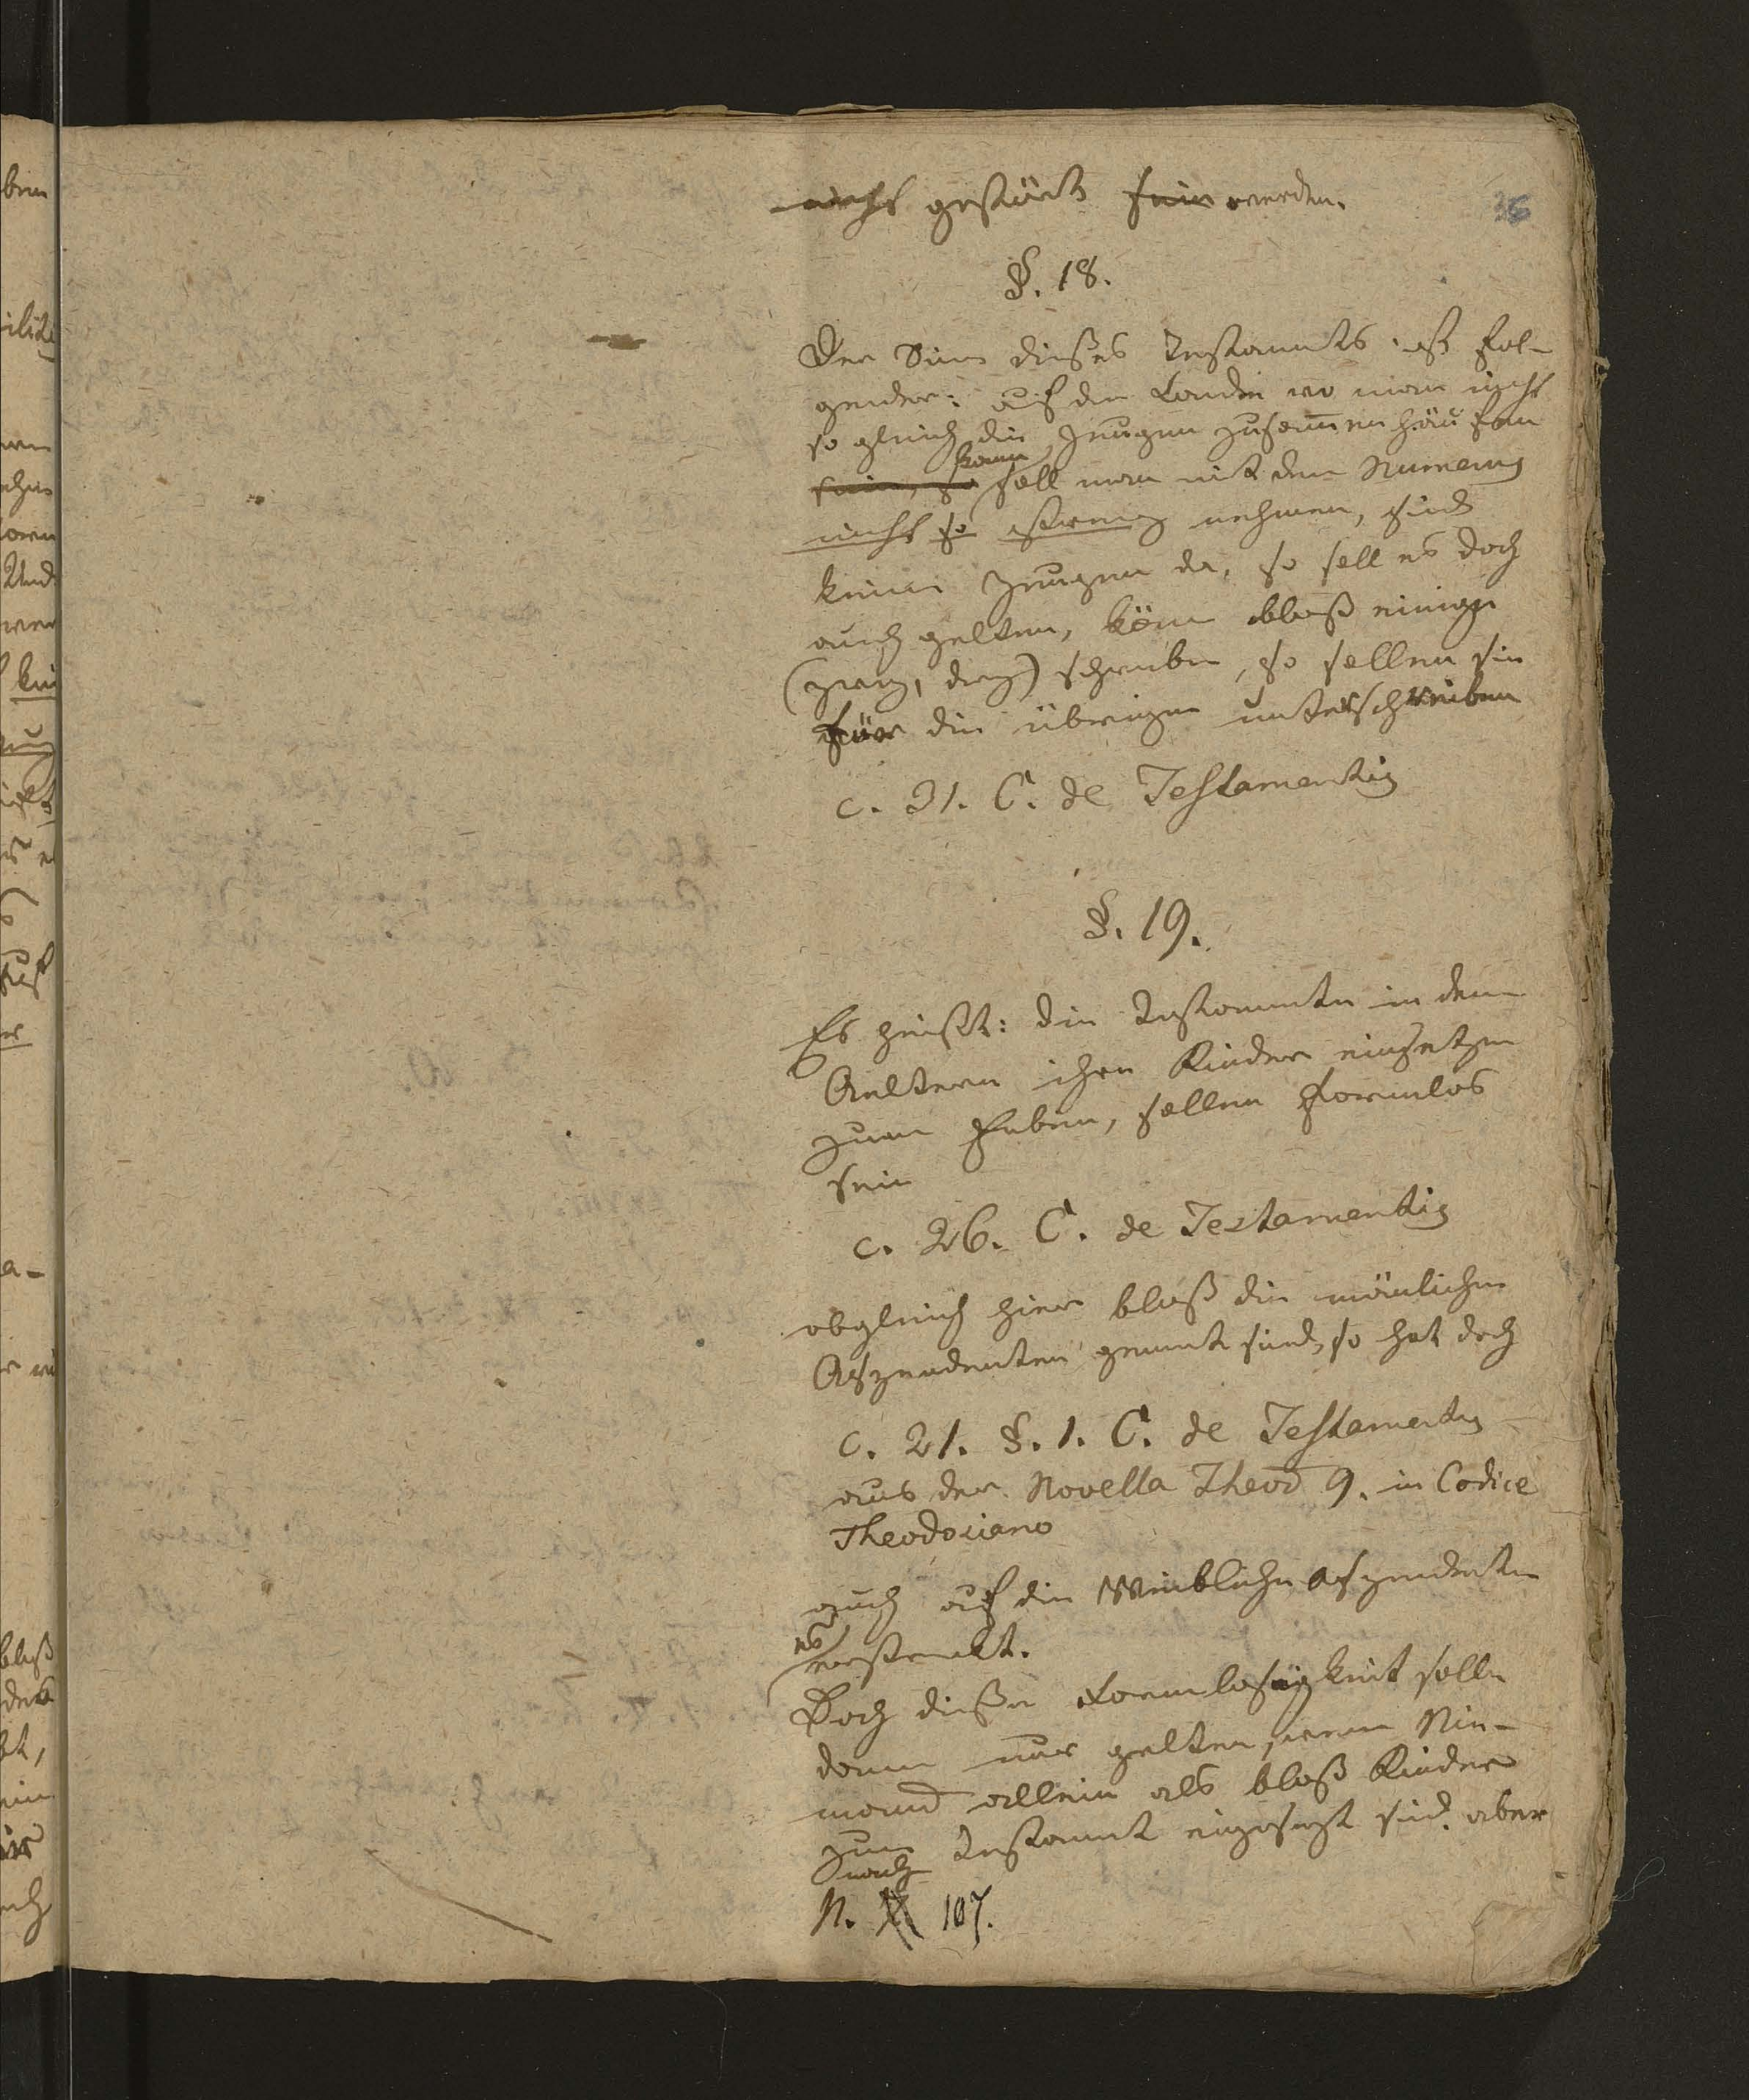 nicht gestört sein werden.
36
§. 18.
Der Sinn dießes Testaments ist fol-
gender: auf den Landen wo man nicht
so gleich die Zeugen zusam̅en häufen
kann
sein, so soll man mit dem Numerus
nicht so streng nehmen, sind
keine Zeugen da, so soll es doch
auch gelten, kön̅en bloß einige
(zwey, drey) schreiben, so sollen sie
für die übrigen unterschreiben
c. 31. C. de Testamentis
§. 19.
Es heißt: die Testamente in denen
Aeltern ihre Kinder einsetzen
zum Erben, sollen Formlos
sein
c. 26. C. de Testamentis
obgleich hier bloß die mänlichen
Aszendenten genent sind, so hat doch
c. 21. §. 1. C. de Testamentis
aus der Novella Theod 9. in Codice
Theodosiano
auch auf die Weiblichen Aszendenten
es
erstrekt.
Doch dieße Formlosigkeit solle
dann nur gelten, wenn Nie-
mand allein als bloß Kinder
zum Testament eingesezt sind. aber
nach
N. 107.